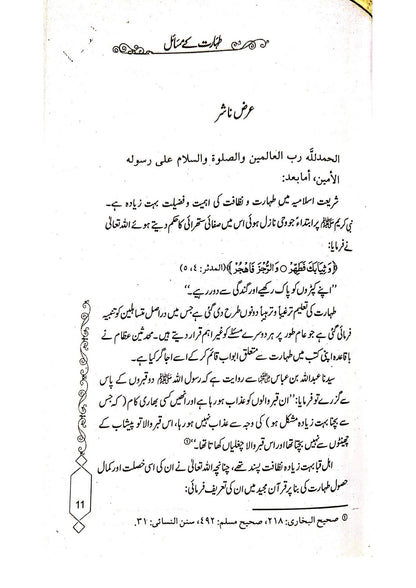 طہارت کے مسائل
عرض ناشر
الحمدلله رب العالمين والصلوة والسلام على رسوله
الأمين، أمابعد:
شریعت اسلامیہ میں طہارت و نظافت کی اہمیت و فضیلت بہت زیادہ ہے۔
نبی کریم ﷺ پر ابتداءً جو وحی نازل ہوئی اس میں صفائی ستھرائی کا حکم دیتے ہوئے اللہ تعالیٰ
نے فرمایا:
﴿وَثِيَابَكَ فَطَهِّرْ ○ وَالرُّجْزَ فَاهْجُرْ﴾ (المدثر: ٤، ٥)
”اپنے کپڑوں کو پاک رکھیے اور گندگی سے دور رہیے۔“
طہارت کی تعلیم ترغیباً و ترہیباً دونوں طرح دی گئی ہے جس میں دراصل متساہلین کو تنبیہ
فرمائی گئی ہے جو عام طور پر ہر دوسرے مسئلے کو غیر اہم قرار دیتے ہیں۔ محدثین عظام نے
باقاعدہ اپنی کتب میں طہارت سے متعلق ابواب قائم کر کے اسے اجاگر کیا ہے۔
سیدنا عبداللہ بن عباس سے روایت ہے کہ رسول اللہ ﷺ دو قبروں کے پاس
سے گزرے تو فرمایا: ”ان قبر والوں کو عذاب ہو رہا ہے اور انھیں کسی بھاری کام (کہ جس
سے بچنا بہت زیادہ مشکل ہو) کی وجہ سے عذاب نہیں ہو رہا، اس قبر والا تو پیشاب کے
چھینٹوں سے نہیں بچتا تھا اور اس قبر والا چغلیاں کھاتا تھا۔“ ①
اہل قبا بہت زیادہ نظافت پسند تھے، چنانچہ اللہ تعالیٰ نے ان کی اسی خصلت اور کمال
حصول طہارت کی بنا پر قرآن مجید میں ان کی تعریف فرمائی:
① صحیح البخاری: ٢١٨، صحیح مسلم: ٤٩٢، سنن النسائی: ٣١.
11